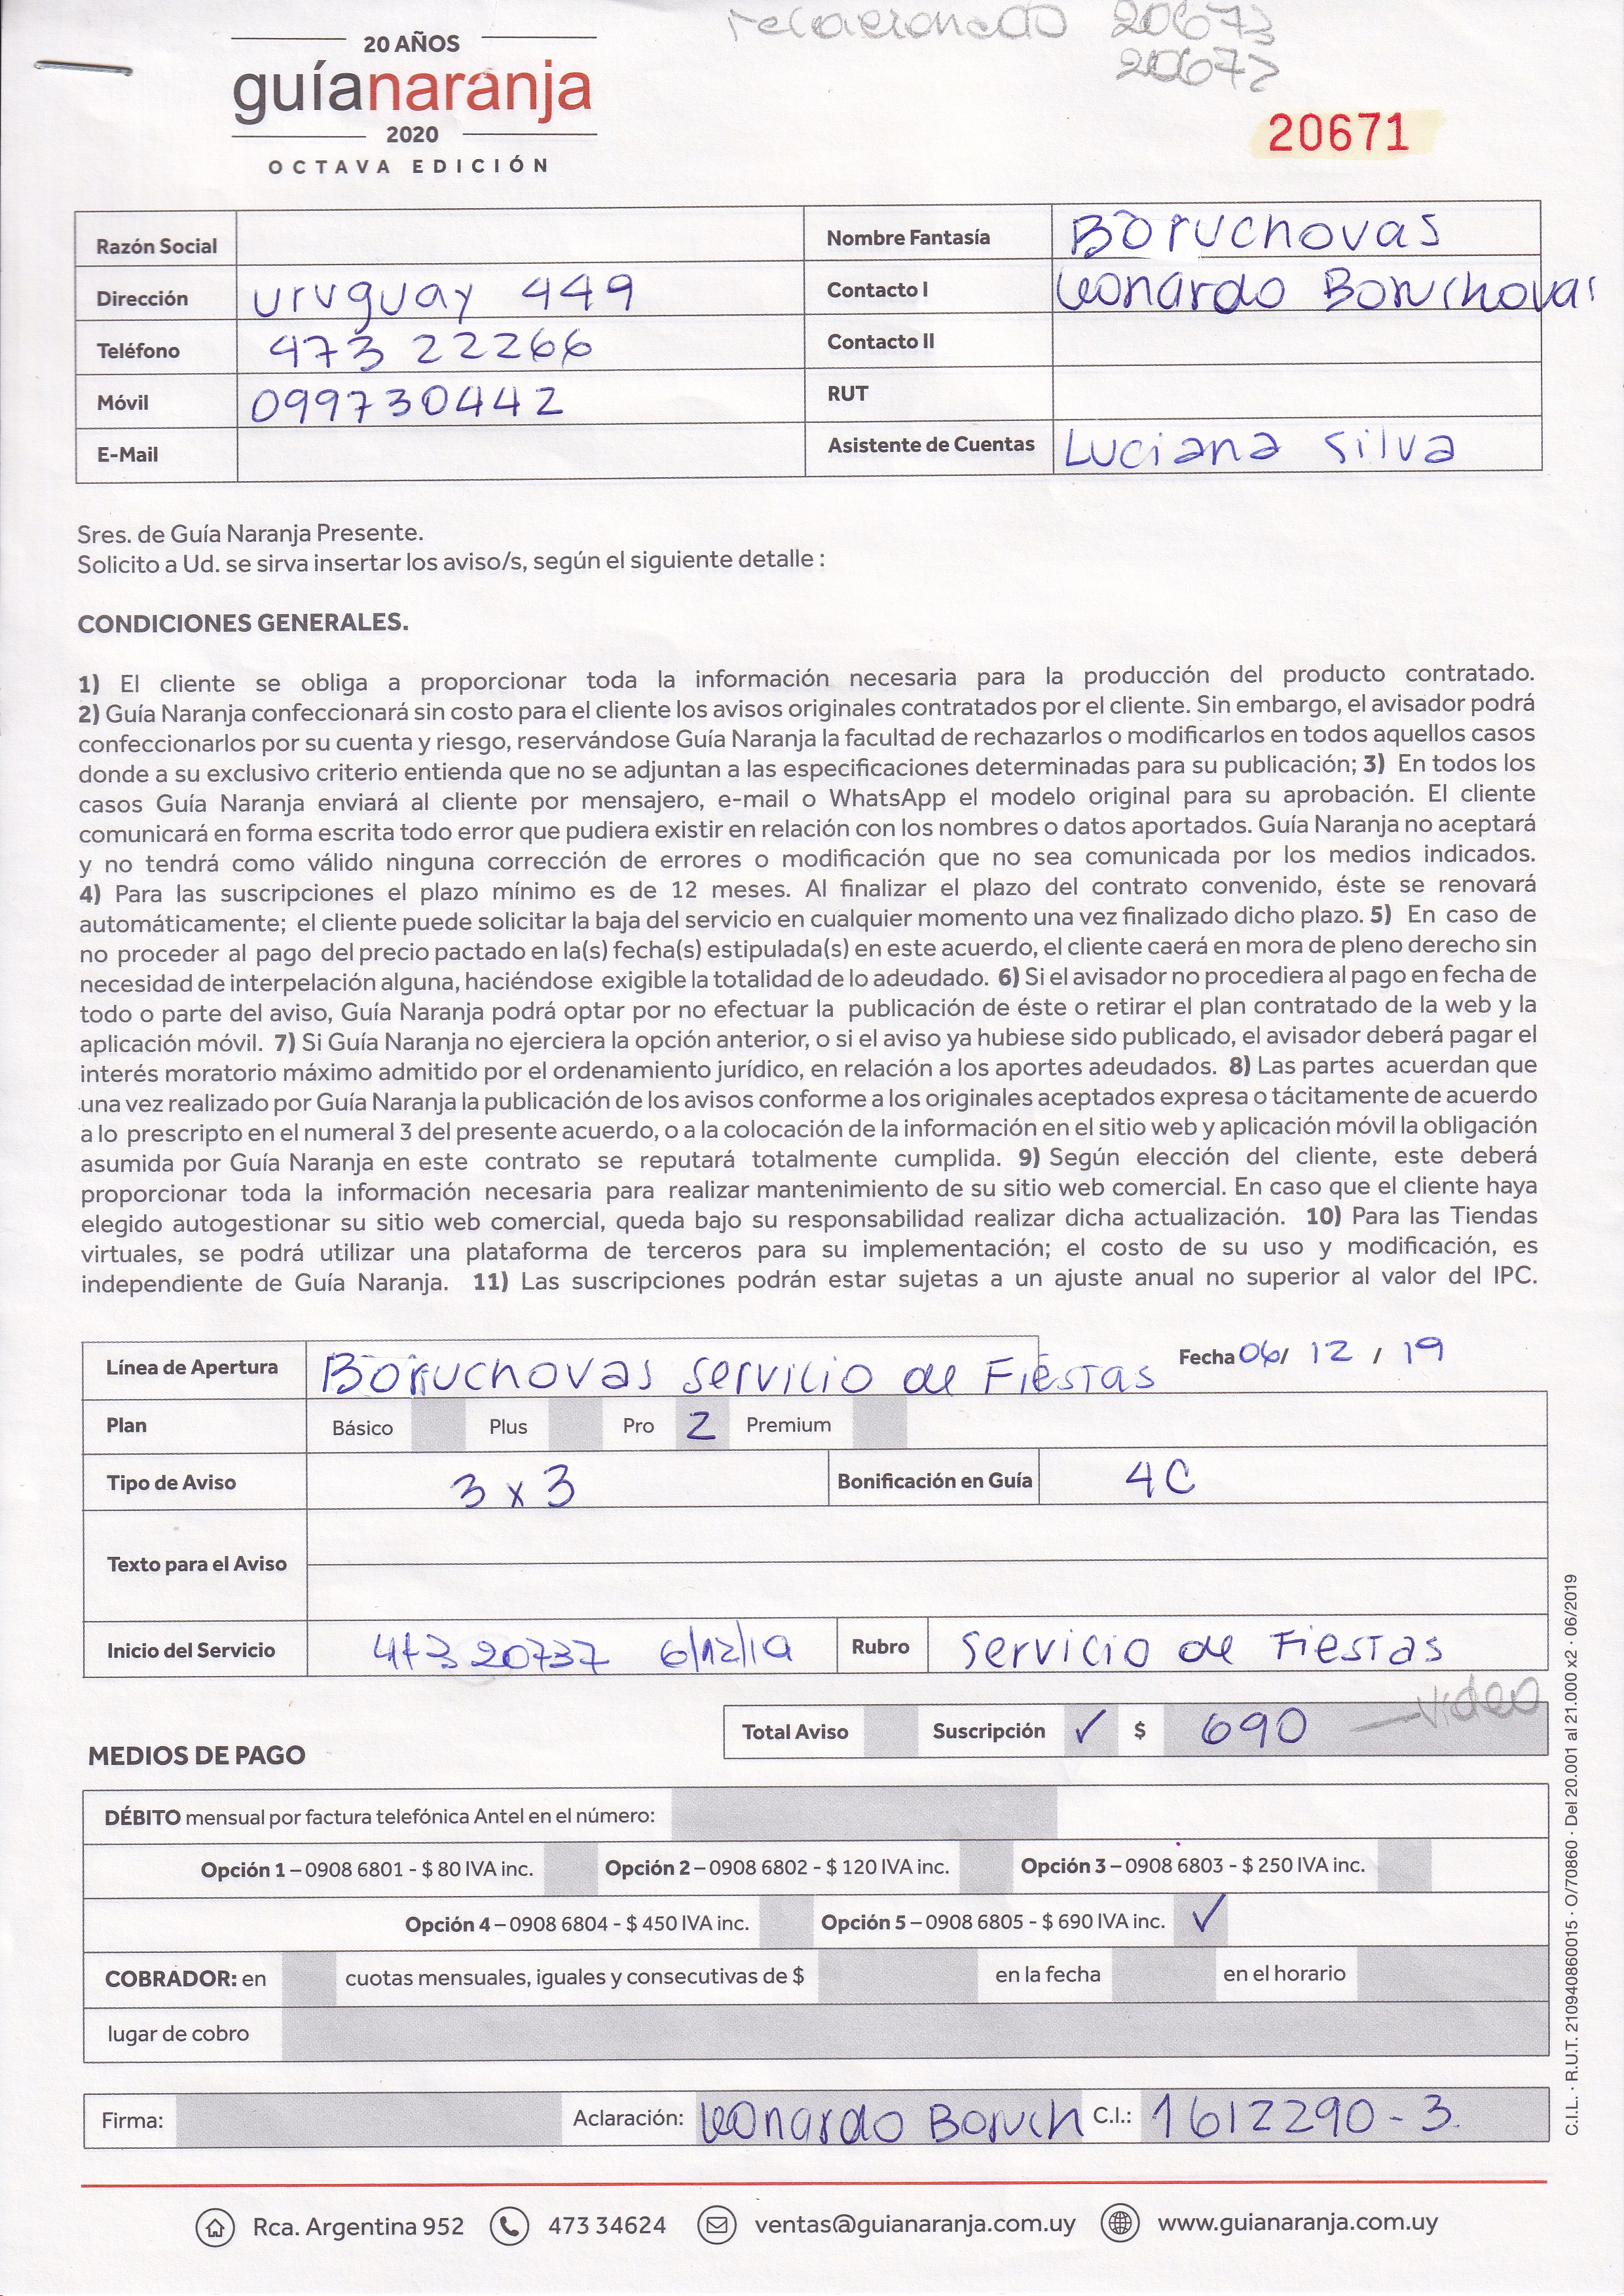 relacionado 20673
20672
20 AÑOS
guíanaranja
2020
OCTAVA EDICIÓN
20671
Razón Social
Nombre Fantasía Boruchovas
Dirección uruguay 449
Contacto I Leonardo Boruchovas
Teléfono 473 22266
Contacto II
Móvil 099730442
RUT
E-Mail
Asistente de Cuentas Luciana Silva
Sres. de Guía Naranja Presente.
Solicito a Ud. se sirva insertar los aviso/s, según el siguiente detalle :
CONDICIONES GENERALES.
1) El cliente se obliga a proporcionar toda la información necesaria para la producción del producto contratado.
2) Guía Naranja confeccionará sin costo para el cliente los avisos originales contratados por el cliente. Sin embargo, el avisador podrá
confeccionarlos por su cuenta y riesgo, reservándose Guía Naranja la facultad de rechazarlos o modificarlos en todos aquellos casos
donde a su exclusivo criterio entienda que no se adjuntan a las especificaciones determinadas para su publicación; 3) En todos los
casos Guía Naranja enviará al cliente por mensajero, e-mail o WhatsApp el modelo original para su aprobación. El cliente
comunicará en forma escrita todo error que pudiera existir en relación con los nombres o datos aportados. Guía Naranja no aceptará
y no tendrá como válido ninguna corrección de errores o modificación que no sea comunicada por los medios indicados.
4) Para las suscripciones el plazo mínimo es de 12 meses. Al finalizar el plazo del contrato convenido, éste se renovará
automáticamente; el cliente puede solicitar la baja del servicio en cualquier momento una vez finalizado dicho plazo. 5) En caso de
no proceder al pago del precio pactado en la(s) fecha(s) estipulada(s) en este acuerdo, el cliente caerá en mora de pleno derecho sin
necesidad de interpelación alguna, haciéndose exigible la totalidad de lo adeudado. 6) Si el avisador no procediera al pago en fecha de
todo o parte del aviso, Guía Naranja podrá optar por no efectuar la publicación de éste o retirar el plan contratado de la web y la
aplicación móvil. 7) Si Guía Naranja no ejerciera la opción anterior, o si el aviso ya hubiese sido publicado, el avisador deberá pagar el
interés moratorio máximo admitido por el ordenamiento jurídico, en relación a los aportes adeudados. 8) Las partes acuerdan que
una vez realizado por Guía Naranja la publicación de los avisos conforme a los originales aceptados expresa o tácitamente de acuerdo
a lo prescripto en el numeral 3 del presente acuerdo, o a la colocación de la información en el sitio web y aplicación móvil la obligación
asumida por Guía Naranja en este contrato se reputará totalmente cumplida. 9) Según elección del cliente, este deberá
proporcionar toda la información necesaria para realizar mantenimiento de su sitio web comercial. En caso que el cliente haya
elegido autogestionar su sitio web comercial, queda bajo su responsabilidad realizar dicha actualización. 10) Para las Tiendas
virtuales, se podrá utilizar una plataforma de terceros para su implementación; el costo de su uso y modificación, es
independiente de Guía Naranja. 11) Las suscripciones podrán estar sujetas a un ajuste anual no superior al valor del IPC.
Línea de Apertura Boruchovas servicio de Fiestas
Fecha 06/ 12 / 19
Plan Básico Plus Pro 2 Premium
Tipo de Aviso 3 x 3
Bonificación en Guía 4C
Texto para el Aviso
Inicio del Servicio 473 20737 6/12/19
Rubro Servicio de Fiestas
Total Aviso Suscripción ✓ $ 690 — video
MEDIOS DE PAGO
DÉBITO mensual por factura telefónica Antel en el número:
Opción 1 – 0908 6801 - $ 80 IVA inc. Opción 2 – 0908 6802 - $ 120 IVA inc. Opción 3 – 0908 6803 - $ 250 IVA inc.
Opción 4 – 0908 6804 - $ 450 IVA inc. Opción 5 – 0908 6805 - $ 690 IVA inc. ✓
COBRADOR: en cuotas mensuales, iguales y consecutivas de $ en la fecha en el horario
lugar de cobro
Firma: Aclaración: Leonardo Boruch C.I.: 1612290-3
Rca. Argentina 952 473 34624 ventas@guianaranja.com.uy www.guianaranja.com.uy
C.I.L. · R.U.T. 210940860015 · O/70860 · Del 20.001 al 21.000 x2 · 06/2019